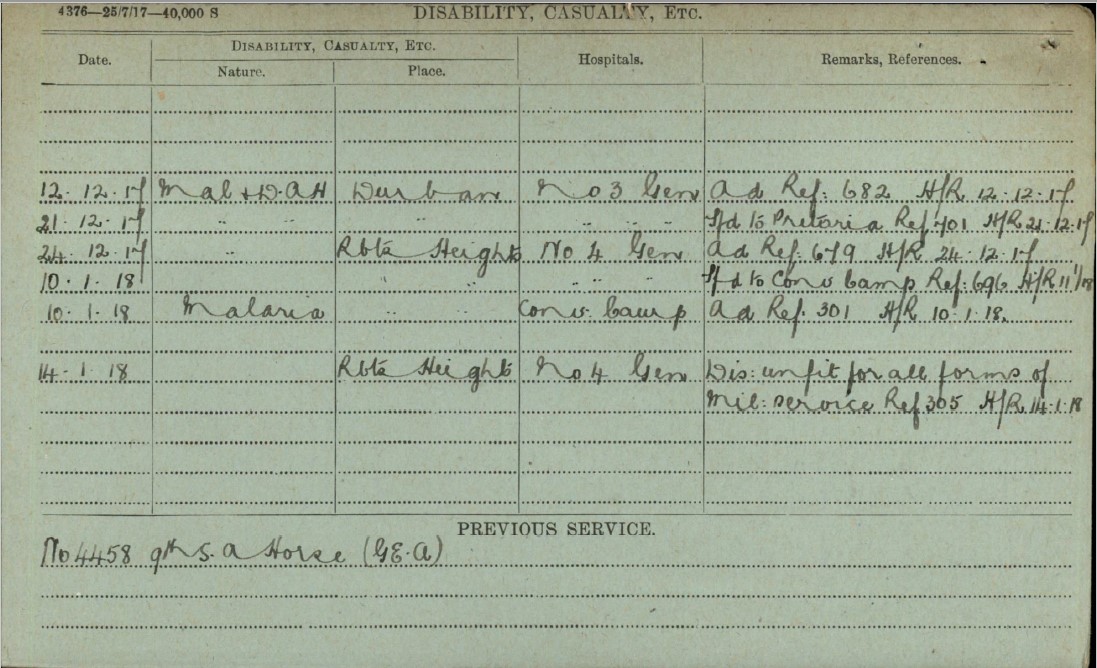 4376—25/7/17—40,000 S
DISABILITY, CASUALTY, ETC.
Date. DISABILITY, CASUALTY, ETC. Hospitals. Remarks, References.
Nature. Place.
12.12.17 Mal + D.A.H Durban No 3 Gen Ad Ref: 682 H/R 12.12.17.
21.12.17 " " " " " " Tfd to Pretoria Ref 701 H/R 21.12.17
24.12.17 " Rbts Heights No 4 Gen Ad Ref: 679 H/R 24.12.17
10.1.18 " " " " " Tfd to Conv Camp Ref: 696 H/R 11/1/08
10.1.18 Malaria " " Conv. Camp Ad Ref. 301 H/R 10.1.18.
14.1.18 Rbts Heights No 4 Gen Dis: unfit for all forms of
Mil: service Ref 305 H/R 14.1.18
PREVIOUS SERVICE.
No 4458 9th S.A Horse (G.E.A)